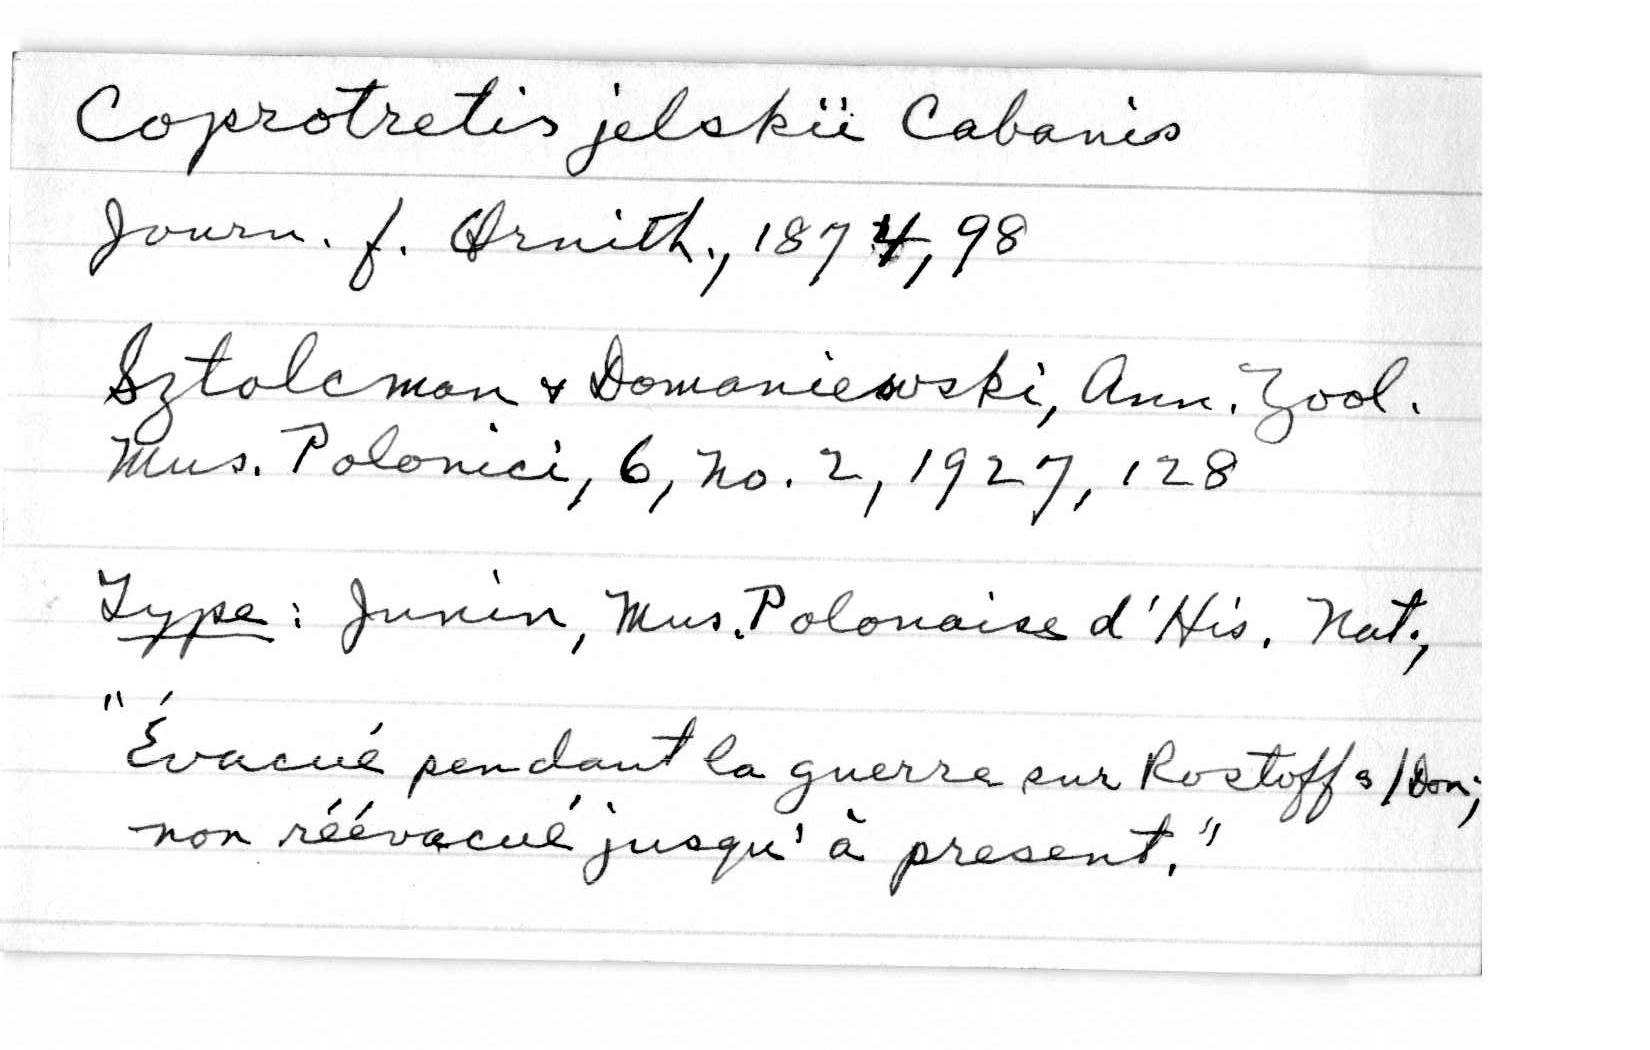 Coprotretis jelskii Cabanis
Journ. f. Ornith., 1874, 98
Sztolcman & Domaniewski, Ann. Zool.
Mus. Polonici, 6, no. 2, 1927, 128
Type: Junin, Mus. Polonaise d'His. Nat.,
"Évacué pendant la guerre sur Rostoff s/Don;
non réévacué jusqu'à present."